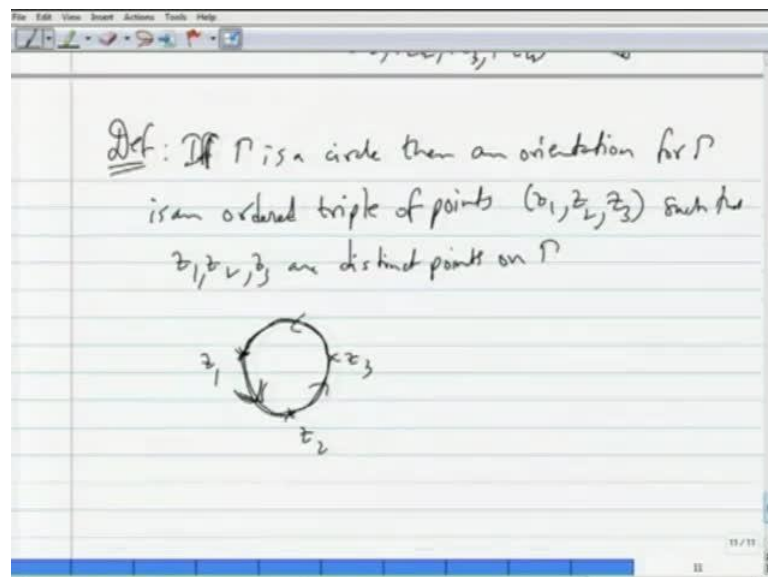 File Edit View Insert Actions Tools Help
Def: If Γ is a circle then an orientation for Γ
is an ordered triple of points (z₁, z₂, z₃) such tha
z₁, z₂, z₃ are distinct points on Γ
z₁
z₃
z₂
11/11
11